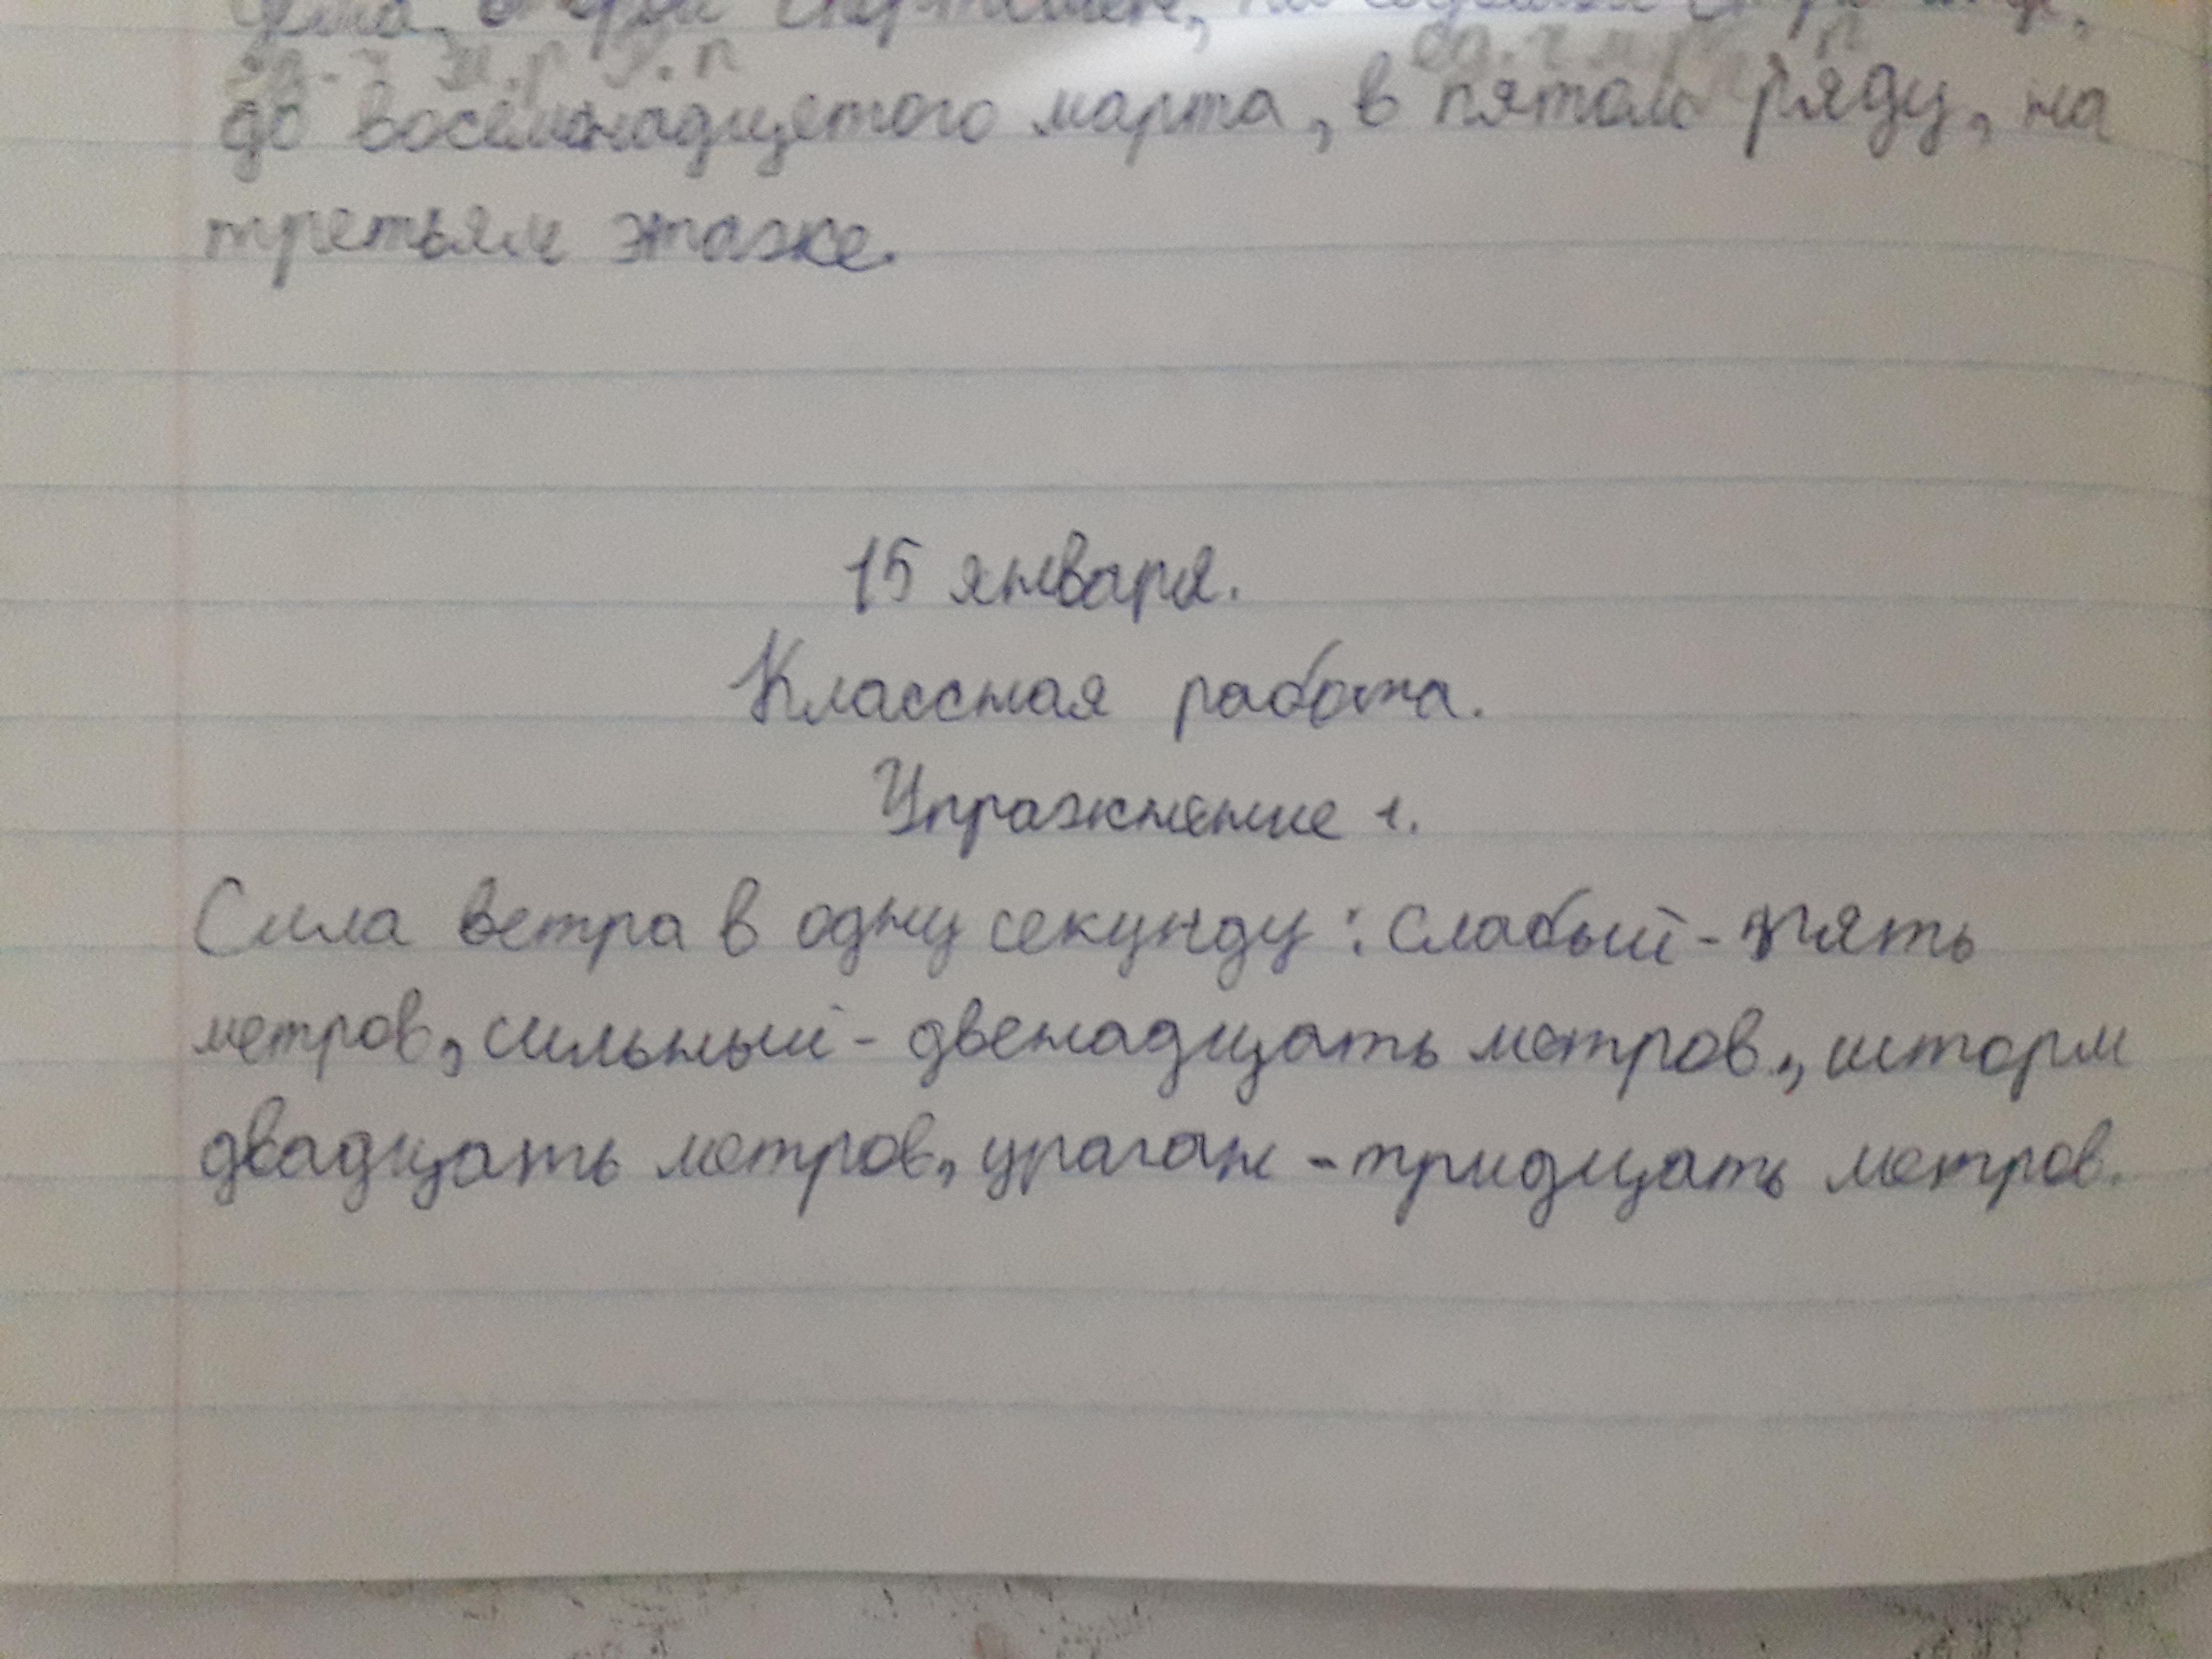 до восемнадцетого марта, в пятом ряду, на
третьям этаже.
15 января.
Классная работа.
Упражнение 1.
Сила ветра в одну секунду: слабый - пять
метров, сильный - двенадцать метров, шторм
двадцать метров, ураган - тридцать метров.